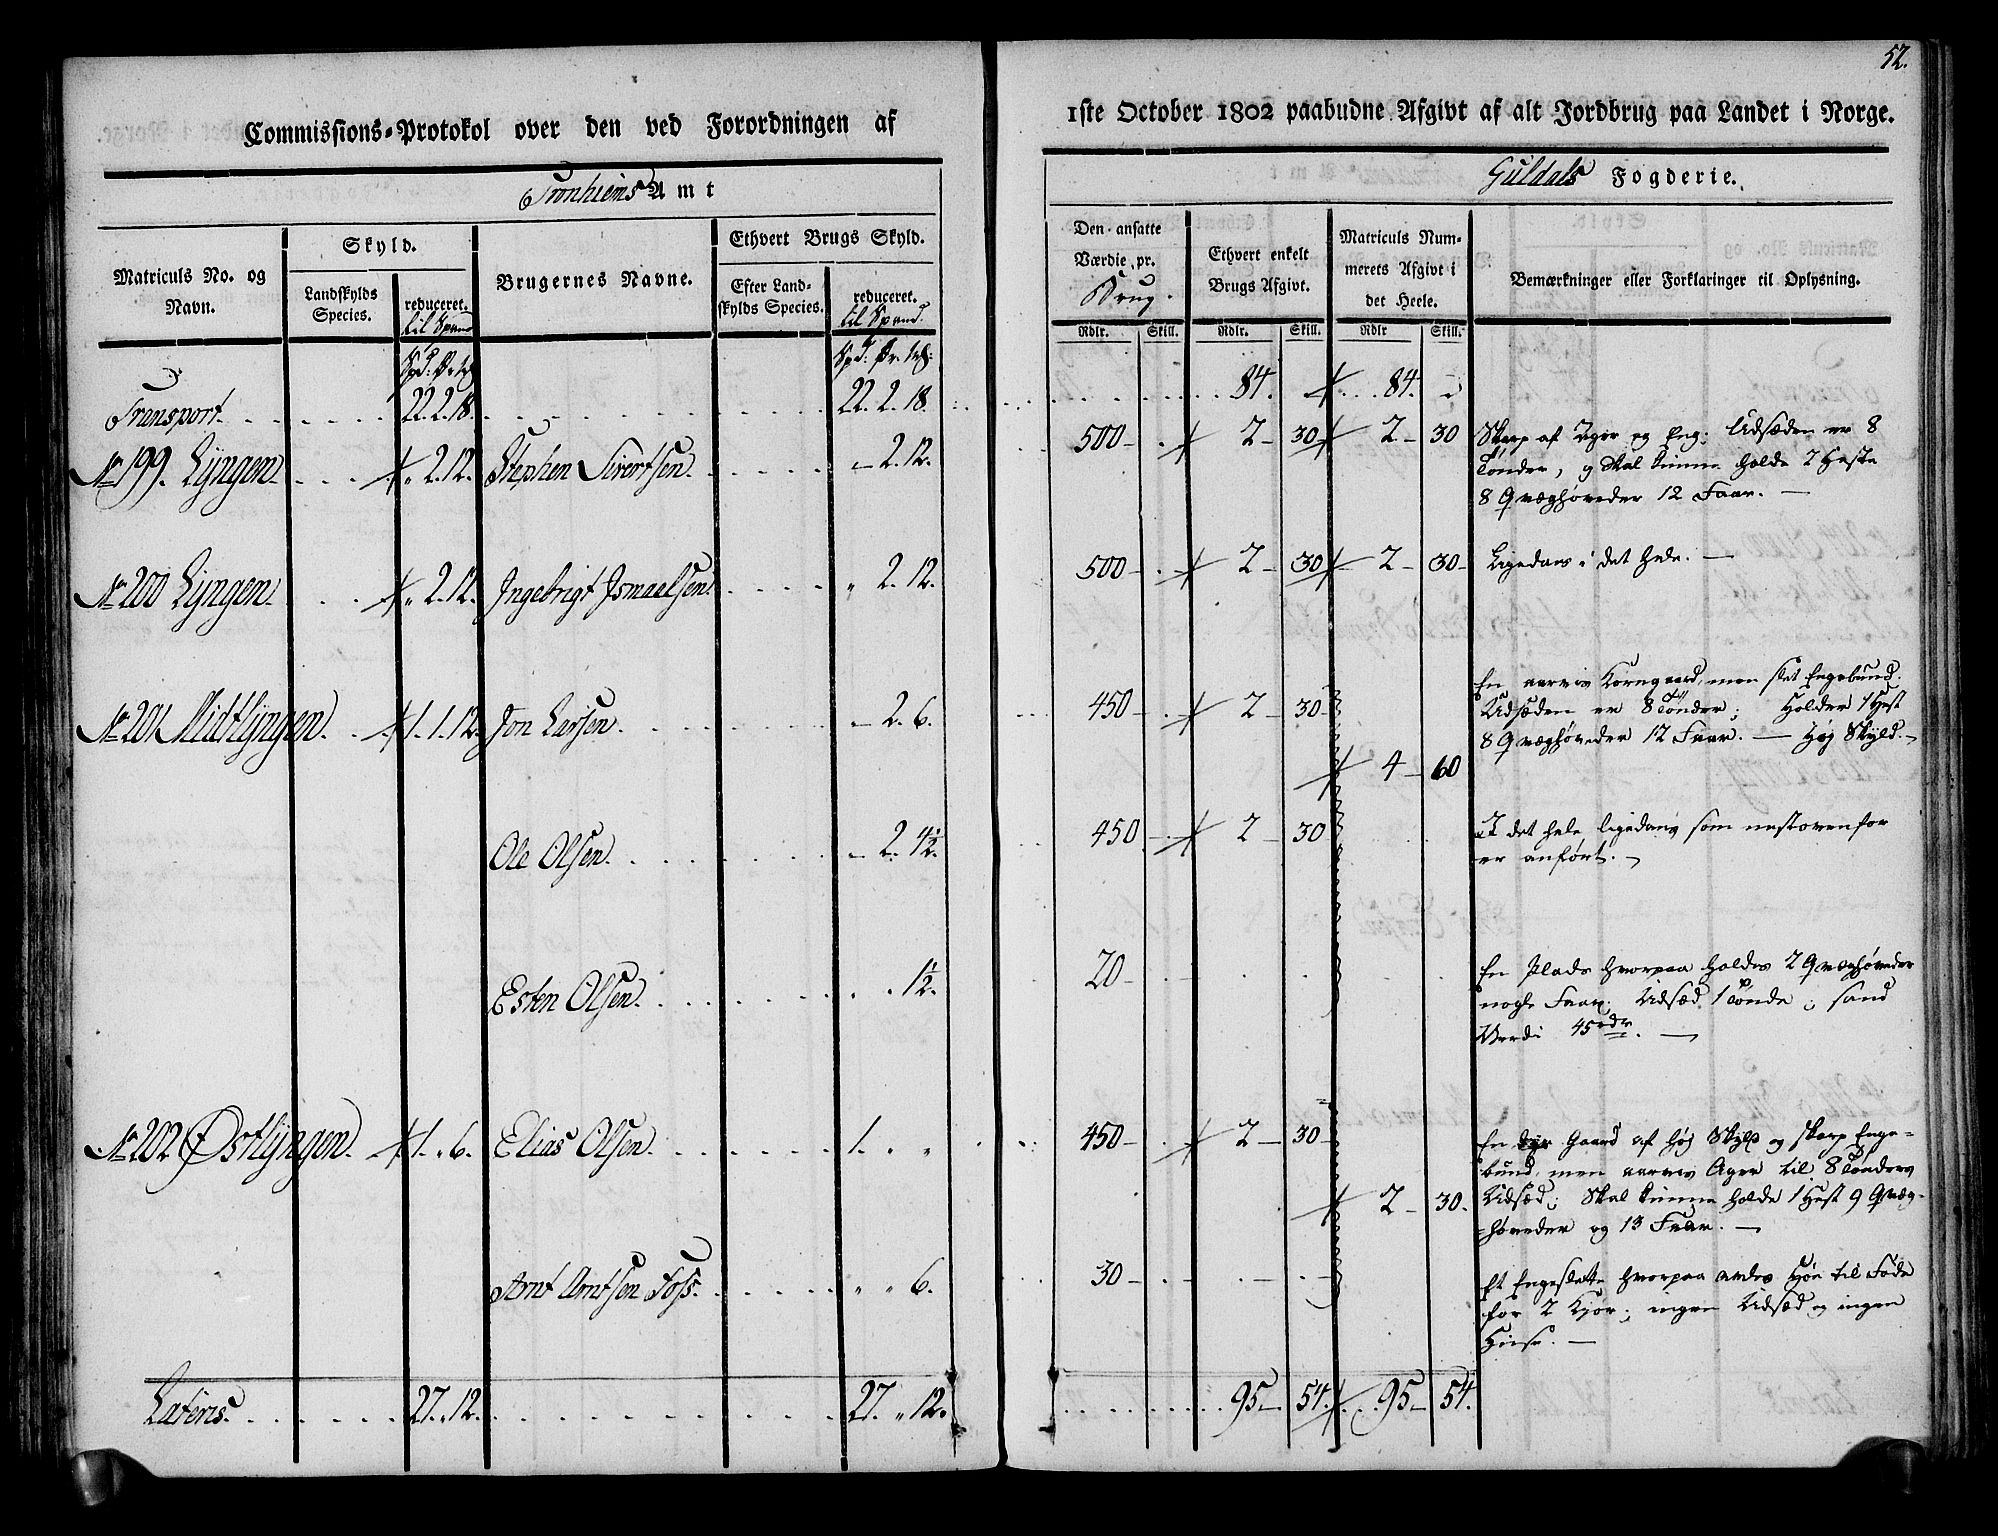 52.
Commissions-Protokol over den ved Forordningen af
1ste October 1802 paabudne Afgivt af alt Jordbrug paa Landet i Norge.
Tronhiems Amt
Guldals Fogderie.
Matriculs No. og Navn.
Skyld.
Landskylds Species.
reduceret. til Spand
Brugernes Navne.
Ethvert Brugs Skyld.
Efter Landskylds Species.
reduceret. til Spand.
Den ansatte Værdie pr. Brug.
Ethvert enkelt Brugs Afgivt.
Matriculs Nummerets Afgivt i det Heele.
Bemærkninger eller Forklaringer til Oplysning.
Rdlr. Skill. Rdlr. Skill. Rdlr Skill.
Transport. 22. 2. 18. 22. 2. 18. 84. 84.
No 199. Lyngen 2. 12. Stephen Sivertsen 2. 12. 500 2 30 2 30 Skarp af Ager og Eng; Udsæden er 8
Tønder, og skal kunne holde 2 Heste
8 Qvæghøveder 12 Faar.
No 200 Lyngen 2. 12. Ingebrigt Ismaelsen 2. 12. 500 2 30 2 30 Ligedans i det hele.
No 201 Midtlyngen 1. 1. 12. Jon Larsen 2. 6. 450 2 30 En aarvis Korngaard, men slet Engebund.
Udsæden er 8 Tønder; Holder 1 Hest
8 Qvæghøveder 12 Faar. Høy Skyld.
4 60
Ole Olsen. 2. 4½. 450 2 30 I det hele ligedans som nestovenfor
er anført.
Esten Olsen. 1½. 20 En Plads hvorpaa holdes 2 Qvæghøveder
nogle Faar; Udsæd 1 Tønde; sand
Verdi 45 rdr.
No 202 Østlyngen. 1. 6. Elias Olsen. 1. 450 2 30 En Gaard af høy Skyld og skarp Enge-
bund, men aarvis Ager til 8 Tønders
2 30. Udsæd; skal kunne holde 1 Hest 9 Qvæg-
høveder og 13 Faar.
Arnt Arntsen Foss. 6. 30 Et Engeslette hvorpaa avles Høe til Føde
for 2 Kjør; ingen Udsæd og ingen
Lateris. 27. 12. 27. 12. 95 54 95 54.